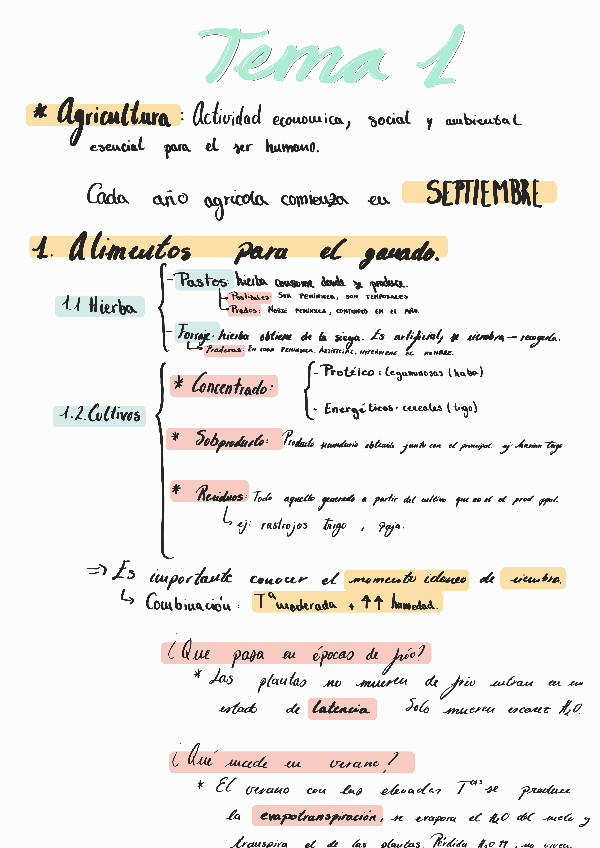 Tema 1
* Agricultura: Actividad economica, social y ambiental
esencial para el ser humano.
Cada año agrícola comienza en SEPTIEMBRE
1. Alimentos para el ganado.
1.1 Hierba
- Pastos: hierba consume donde se produce.
Pastizales: Sur península, son temporales
Prados: Norte península, continuo en el año.
- Forraje: hierba obtiene de la siega. Es artificial, se siembra – recogerla.
Praderas: En toda península. Artificial, interviene el hombre.
1.2. Cultivos
* Concentrado:
- Protéico: leguminosas (haba)
- Energéticos: cereales (trigo)
* Subproducto: Producto secundario obtenido junto con el principal. ej: harina trigo
* Residuos: Todo aquello generado a partir del cultivo que no es el prod. ppal.
ej: rastrojos trigo, paja.
⇒ Es importante conocer el momento idoneo de siembra.
↳ Combinación: Tª moderada + ↑↑ humedad.
¿Que pasa en épocas de frío?
* Las plantas no mueren de frio entran en un
estado de latencia Solo mueren escarez H₂O.
¿Qué sucede en verano?
* El verano con las elevadas Tªs se produce
la evapotranspiración, se evapora el H₂O del suelo y
transpira el de las plantas. Pérdida H₂O ↑↑, no viven